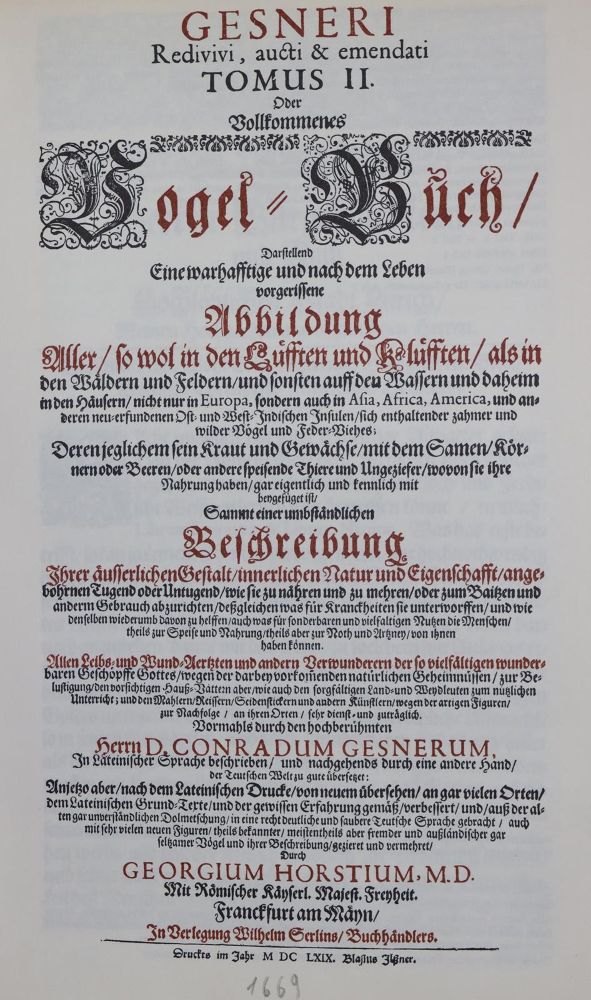 GESNERI
Redivivi, aucti & emendati
TOMUS II.
Oder
Vollkommenes
Vogel-Buch/
Darstellend
Eine warhafftige und nach dem Leben
vorgerissene
Abbildung
Aller/ so wol in den Lüfften und Klüfften/ als in
den Wäldern und Feldern/ und sonsten auff den Wassern und daheim
in den Häusern/ nicht nur in Europa, sondern auch in Asia, Africa, America, und an-
deren neu-erfundenen Ost- und West-Indischen Insulen/ sich enthaltender zahmer und
wilder Vögel und Feder-Viehes;
Deren jeglichem sein Kraut und Gewächse/ mit dem Samen/ Kör-
nern oder Beeren/ oder andere speisende Thiere und Ungeziefer/ wovon sie ihre
Nahrung haben/ gar eigentlich und kennlich mit
beygefüget ist/
Sammt einer umbständlichen
Beschreibung
Ihrer äusserlichen Gestalt/ innerlichen Natur und Eigenschafft/ ange-
bohrnen Tugend oder Untugend/ wie sie zu nähren und zu mehren/ oder zum Baitzen und
anderm Gebrauch abzurichten/ deßgleichen was für Kranckheiten sie unterworffen/ und wie
denselben wiederumb davon zu helffen/ auch was für sonderbaren und vielfaltigen Nutzen die Menschen/
theils zur Speise und Nahrung/ theils aber zur Noth und Artzney/ von ihnen
haben können.
Allen Leibs- und Wund-Aertzten und andern Verwunderern der so vielfältigen wunder-
baren Geschöpffe Gottes/ wegen der darbey vorkommenden natürlichen Geheimnüssen/ zur Be-
lustigung/ den vorsichtigen Hauß-Vätten aber/ wie auch den sorgfältigen Land- und Weydleuten zum nützlichen
Unterricht; und den Mahlern/ Reissern/ Seidenstickern und andern Künstlern/ wegen der artigen Figuren/
zur Nachfolge/ an ihren Orten/ sehr dienst- und zuträglich.
Vormahls durch den hochberühmten
Herrn D. CONRADUM GESNERUM,
In Lateinischer Sprache beschrieben/ und nachgehends durch eine andere Hand/
der Teutschen Welt zu gute übersetzet:
Anjetzo aber/ nach dem Lateinischen Drucke/ von neuem übersehen/ an gar vielen Orten/
dem Lateinischen Grund-Texte/ und der gewissen Erfahrung gemäß/ verbessert/ und/ auß der al-
ten gar unverständlichen Dolmetschung/ in eine recht deutliche und saubere Teutsche Sprache gebracht/ auch
mit sehr vielen neuen Figuren/ theils bekannter/ meistentheils aber fremder und außländischer gar
seltzamer Vögel und ihrer Beschreibung/ gezieret und vermehret/
Durch
GEORGIUM HORSTIUM, M.D.
Mit Römischer Käyserl. Majest. Freyheit.
Franckfurt am Mäyn/
In Verlegung Wilhelm Serlins/ Buchhändlers.
Druckts im Jahr M DC LXIX. Blasius Ilßner.
1669